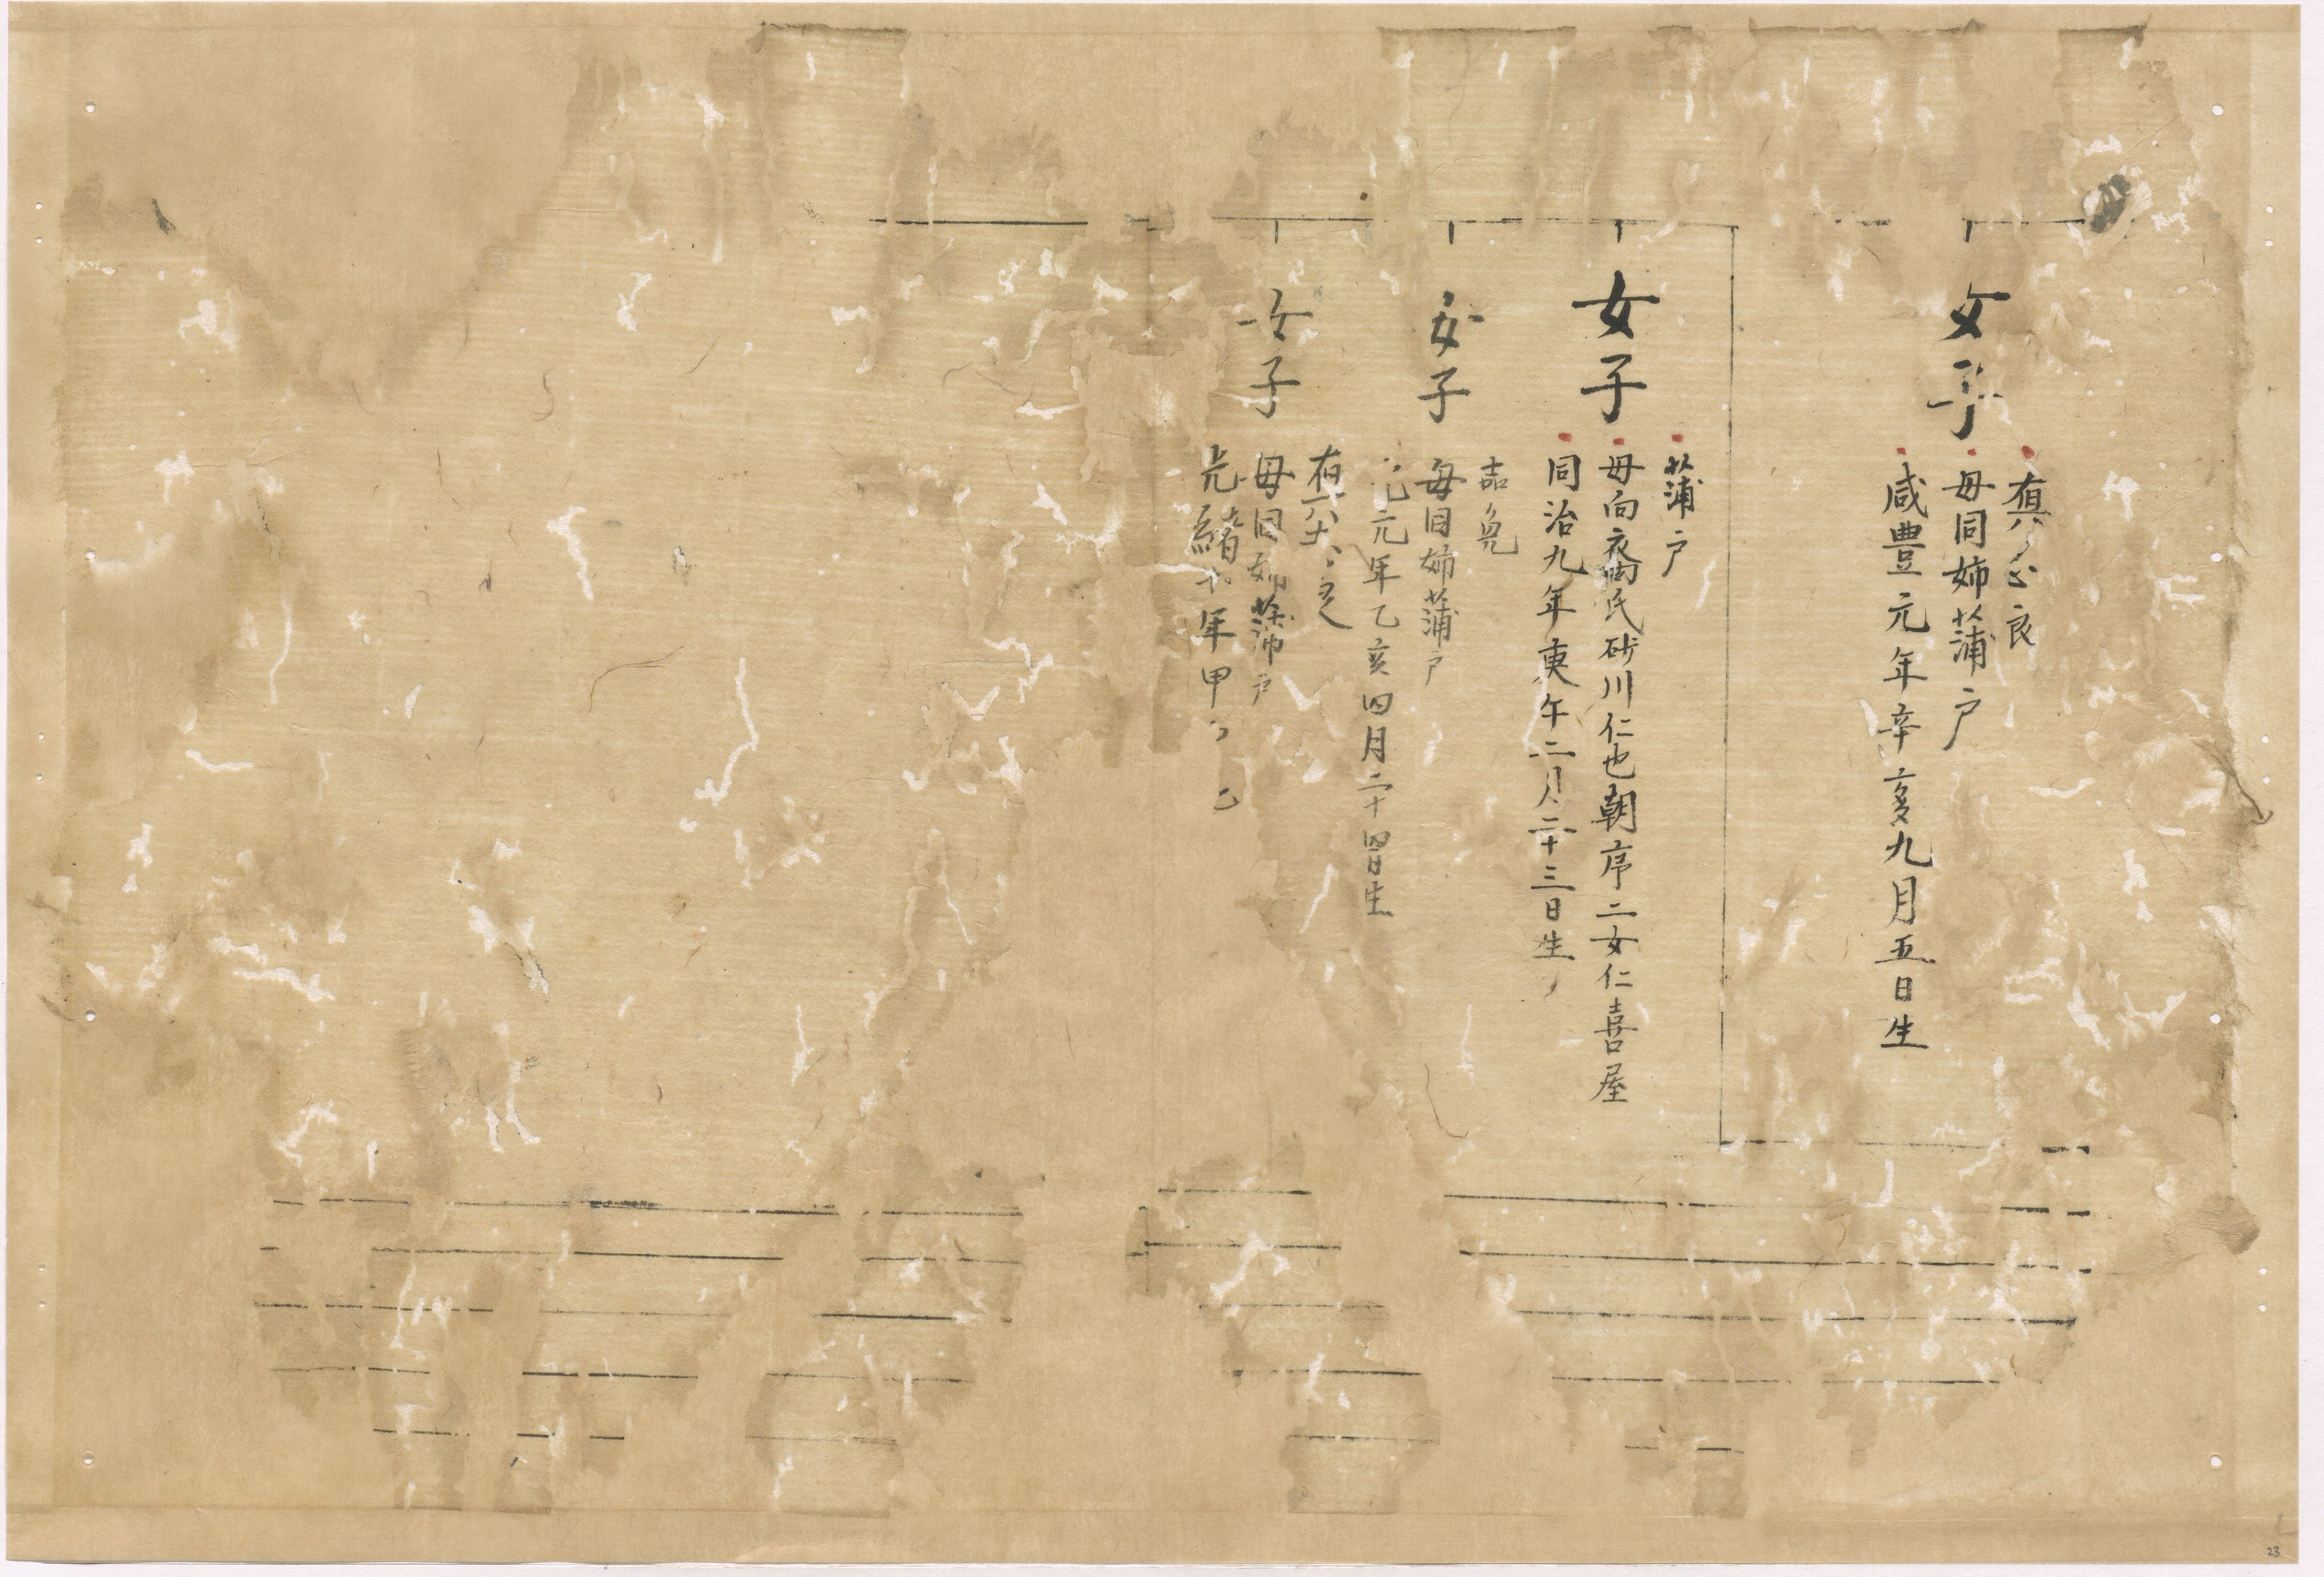 女子
母同姉蒲戸
咸豊元年辛亥九月五日生
女子
蒲戸
母向裔氏砂川仁也朝序二女仁喜屋
同治九年庚午二月二十三日生
女子
母同姉蒲戸
元年乙亥四月二十四日生
女子
母同姉蒲戸
光緒十年甲
23